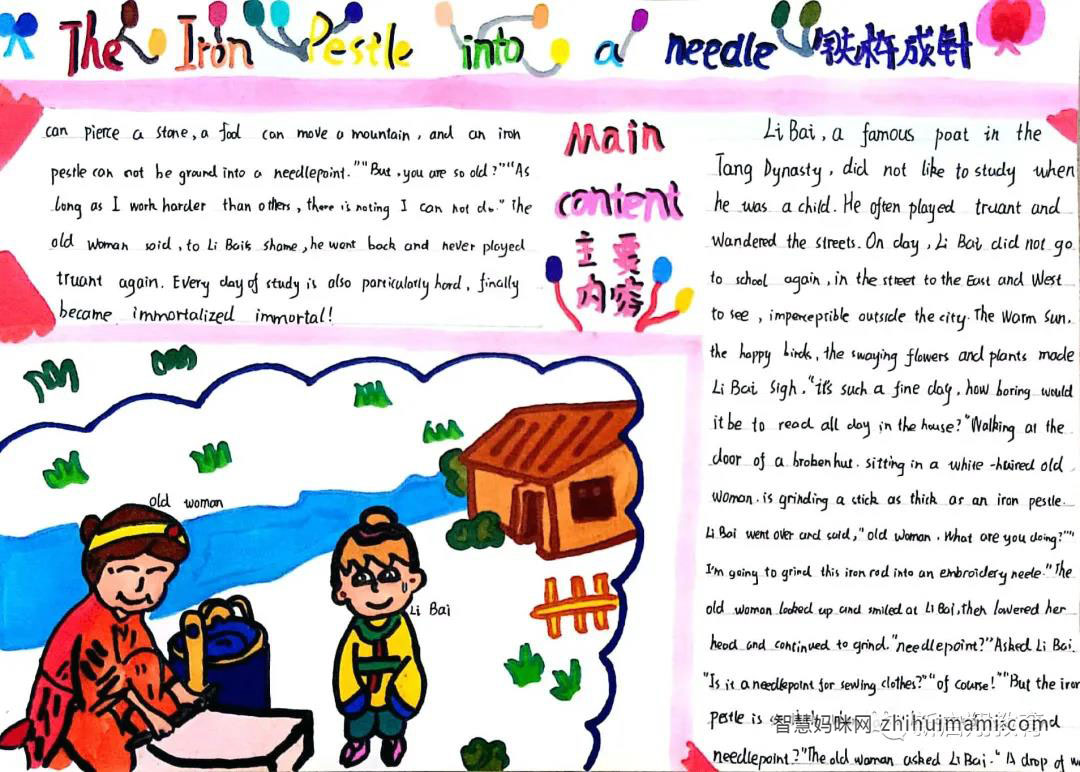 The Iron Pestle into a needle 铁杵成针
Main
content
主要
内容
Li Bai, a famous poat in the
Tang Dynasty, did not like to study when
he was a child. He often played truant and
wandered the streets. On day, Li Bai did not go
to school again, in the street to the East and West
to see, imperceptible outside the city. The warm sun,
the happy birds, the swaying flowers and plants made
Li Bai sigh. "it's such a fine day, how boring would
it be to read all day in the house?" Walking at the
door of a broken hut. sitting in a white-haired old
woman. is grinding a stick as thick as an iron pestle.
Li Bai went over and said, "old woman. What are you doing?""
I'm going to grind this iron rod into an embroidery neele." The
old woman looked up and smiled at Li Bai, then lowered her
head and continued to grind. "needlepoint?" Asked Li Bai.
"Is it a needlepoint for sewing clothes?" "of course!" "But the iron
pestle is
needlepoint?" The old woman asked Li Bai. "A drop of w
can pierce a stone, a fool can move a mountain, and an iron
pestle can not be ground into a needlepoint." "But, you are so old?" "As
long as I work harder than others, there is noting I can not do." The
old woman said, to Li Bai's shame, he went back and never played
truant again. Every day of study is also particularly hard, finally
became immortalized immortal!
old woman
Li Bai
智慧妈咪网 zhihuimami.com